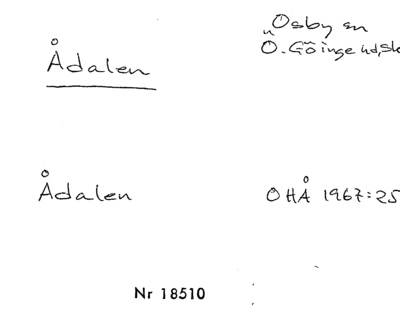 Ådalen
Osby sn
Ö. Göinge hd, Sk
Ådalen
OHÅ 1967:25
Nr 18510